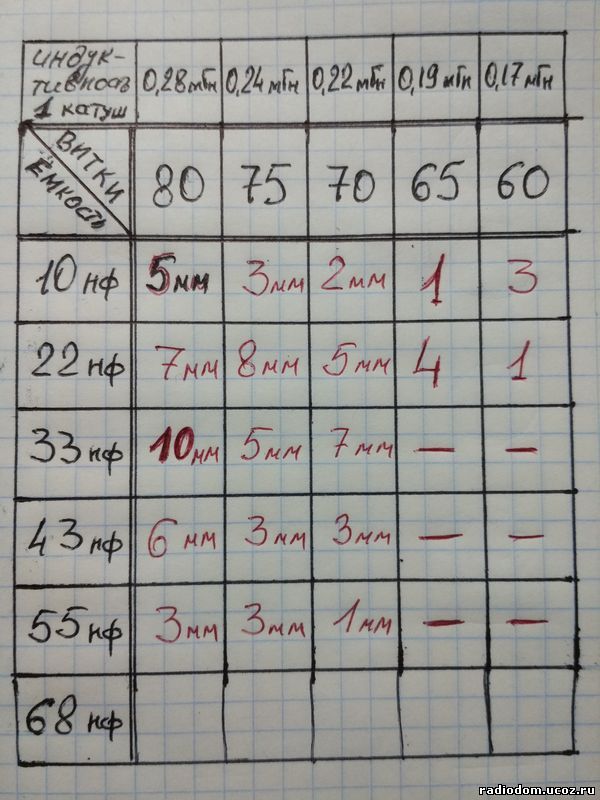 индук-
тивность
1 катуш
0,28мГн 0,24 мГн 0,22мГн 0,19 мГн 0,17 мГн
ВИТКИ
ЁМКОСТЬ
80 75 70 65 60
10 нф 5мм 3мм 2мм 1 3
22 нф 7мм 8мм 5мм 4 1
33 нф 10мм 5мм 7мм — —
43 нф 6 мм 3мм 3мм — —
55 нф 3мм 3мм 1мм — —
68 нф
radiodom.ucoz.ru